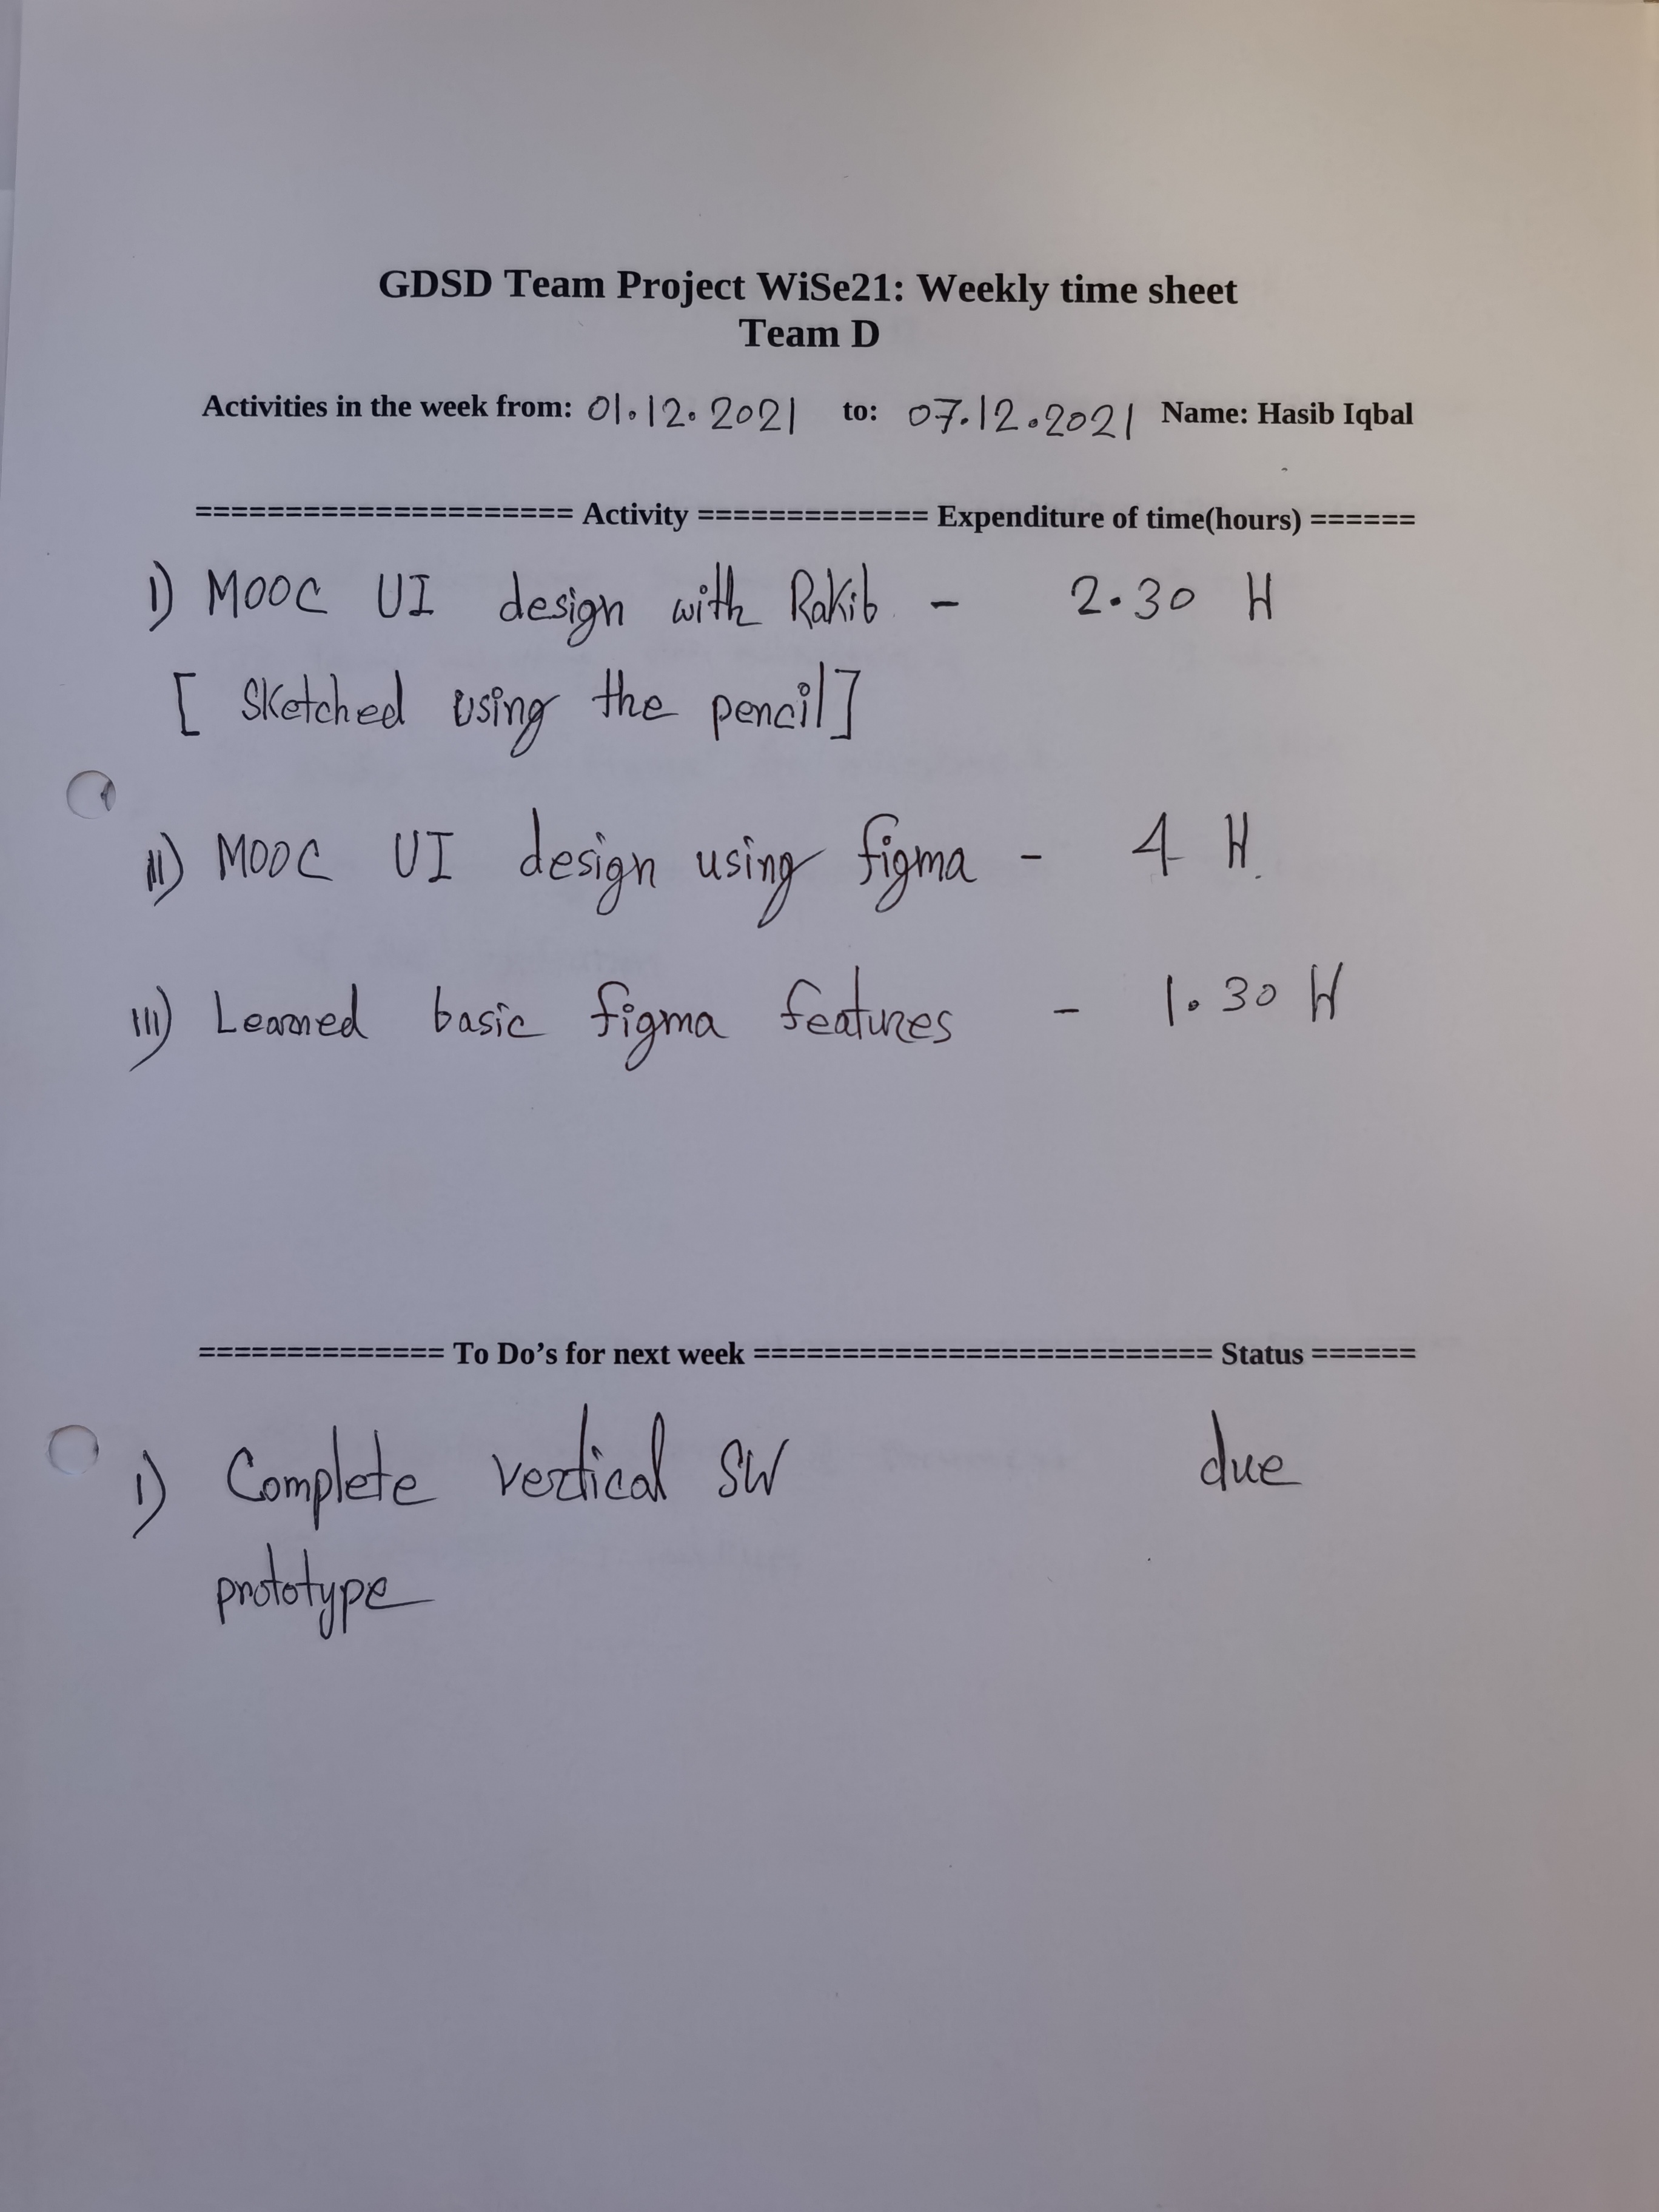 GDSD Team Project WiSe21: Weekly time sheet
Team D
Activities in the week from: 01.12.2021 to: 07.12.2021 Name: Hasib Iqbal
===================== Activity ============= Expenditure of time(hours) ======
I) MOOC UI design with Rakib - 2.30 H
[ Sketched using the pencil]
II) MOOC UI design using figma - 4 H.
III) Learned basic figma features - 1.30 H
============== To Do’s for next week ========================== Status ======
I) Complete vertical SW due
prototype